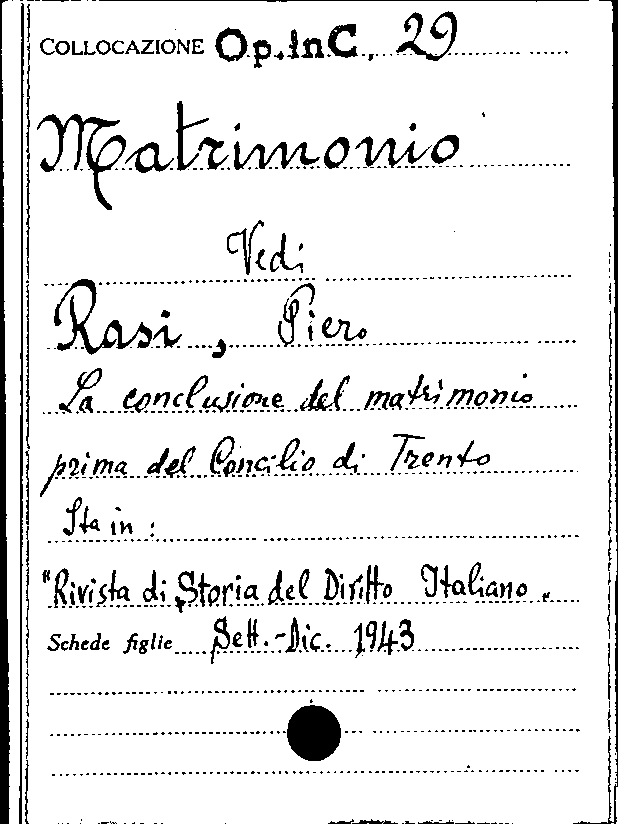 COLLOCAZIONE Op.inC, 29
Matrimonio
Vedi
Rasi, Piero
La conclusione del matrimonio
prima del Concilio di Trento
Sta in:
"Rivista di Storia del Diritto Italiano"
Schede figlie Sett.-Dic. 1943